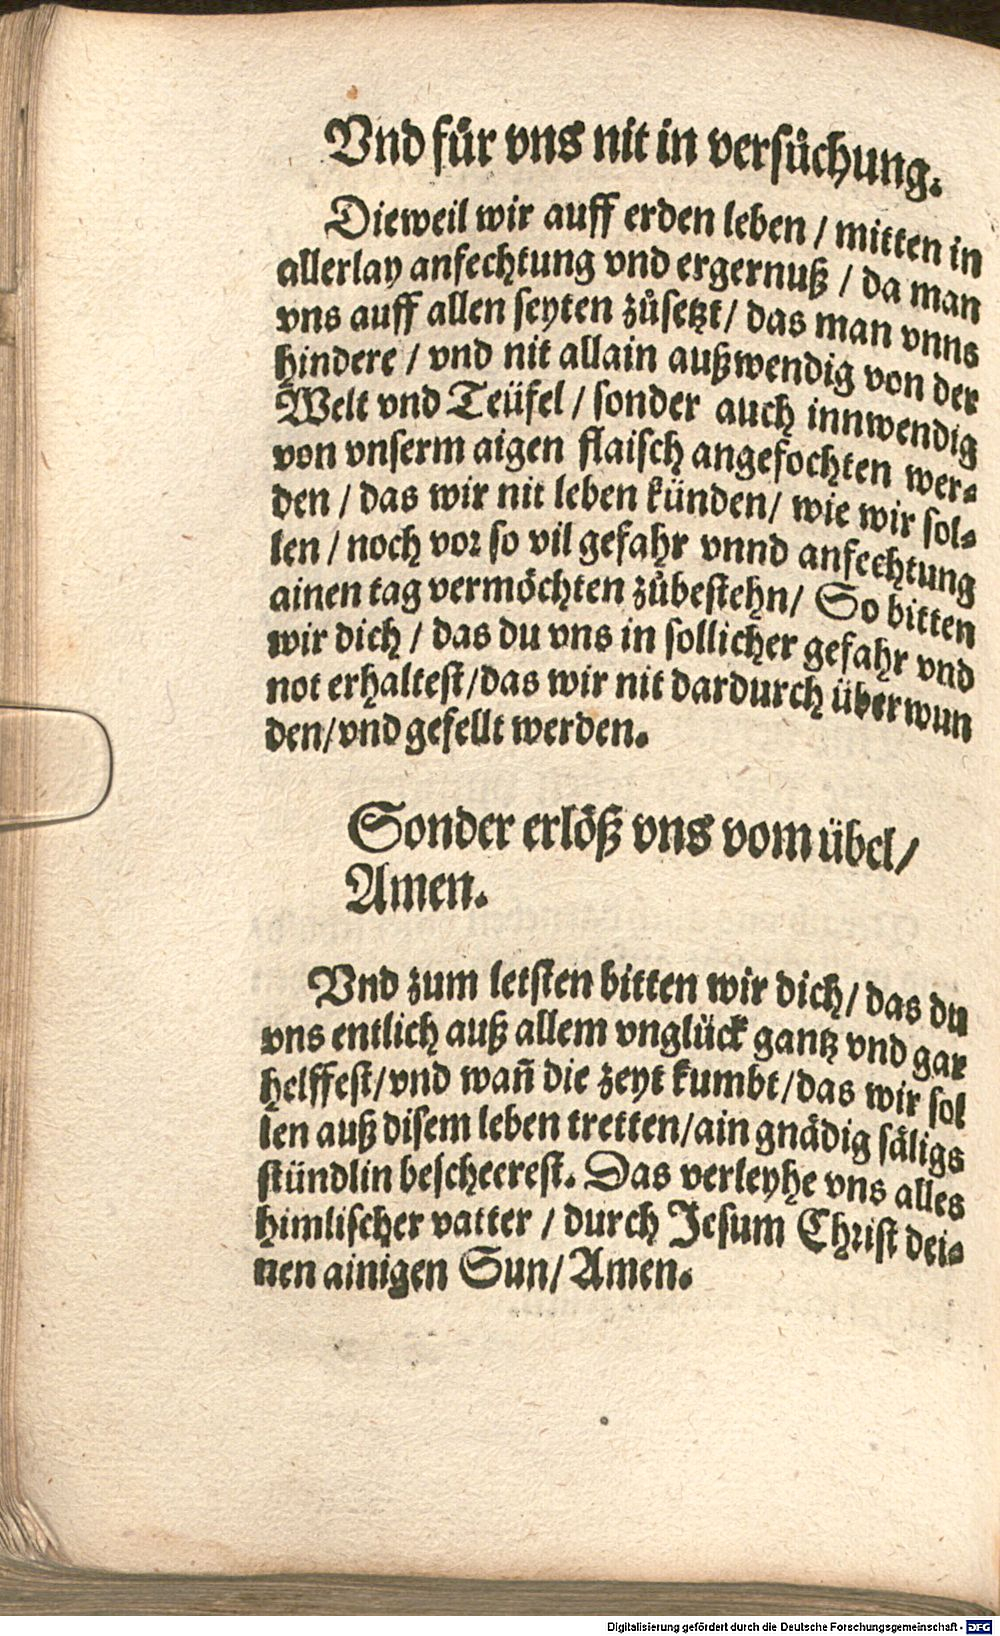 Vnd für vns nit in versuͦchung.
Dieweil wir auff erden leben / mitten in
allerlay anfechtung vnd ergernuß / da man
vns auff allen seyten zuͦsetzt / das man vnns
hindere / vnd nit allain außwendig von der
Welt vnd Teüfel / sonder auch innwendig
von vnserm aigen flaisch angefochten wer⸗
den / das wir nit leben künden / wie wir sol⸗
len / noch vor so vil gefahr vnnd anfechtung
ainen tag vermöchten zuͦbestehn / So bitten
wir dich / das du vns in sollicher gefahr vnd
not erhaltest / das wir nit dardurch überwun
den / vnd gefellt werden.
Sonder erlöß vns vom übel /
Amen.
Vnd zum letsten bitten wir dich / das du
vns entlich auß allem vnglück gantz vnd gar
helffest / vnd wañ die zeyt kumbt / das wir sol
len auß disem leben tretten / ain gnädig säligs
stündlin bescheerest. Das verleyhe vns alles
himlischer vatter / durch Jesum Christ dei⸗
nen ainigen Sun / Amen.
Digitalisierung gefördert durch die Deutsche Forschungsgemeinschaft - DFG